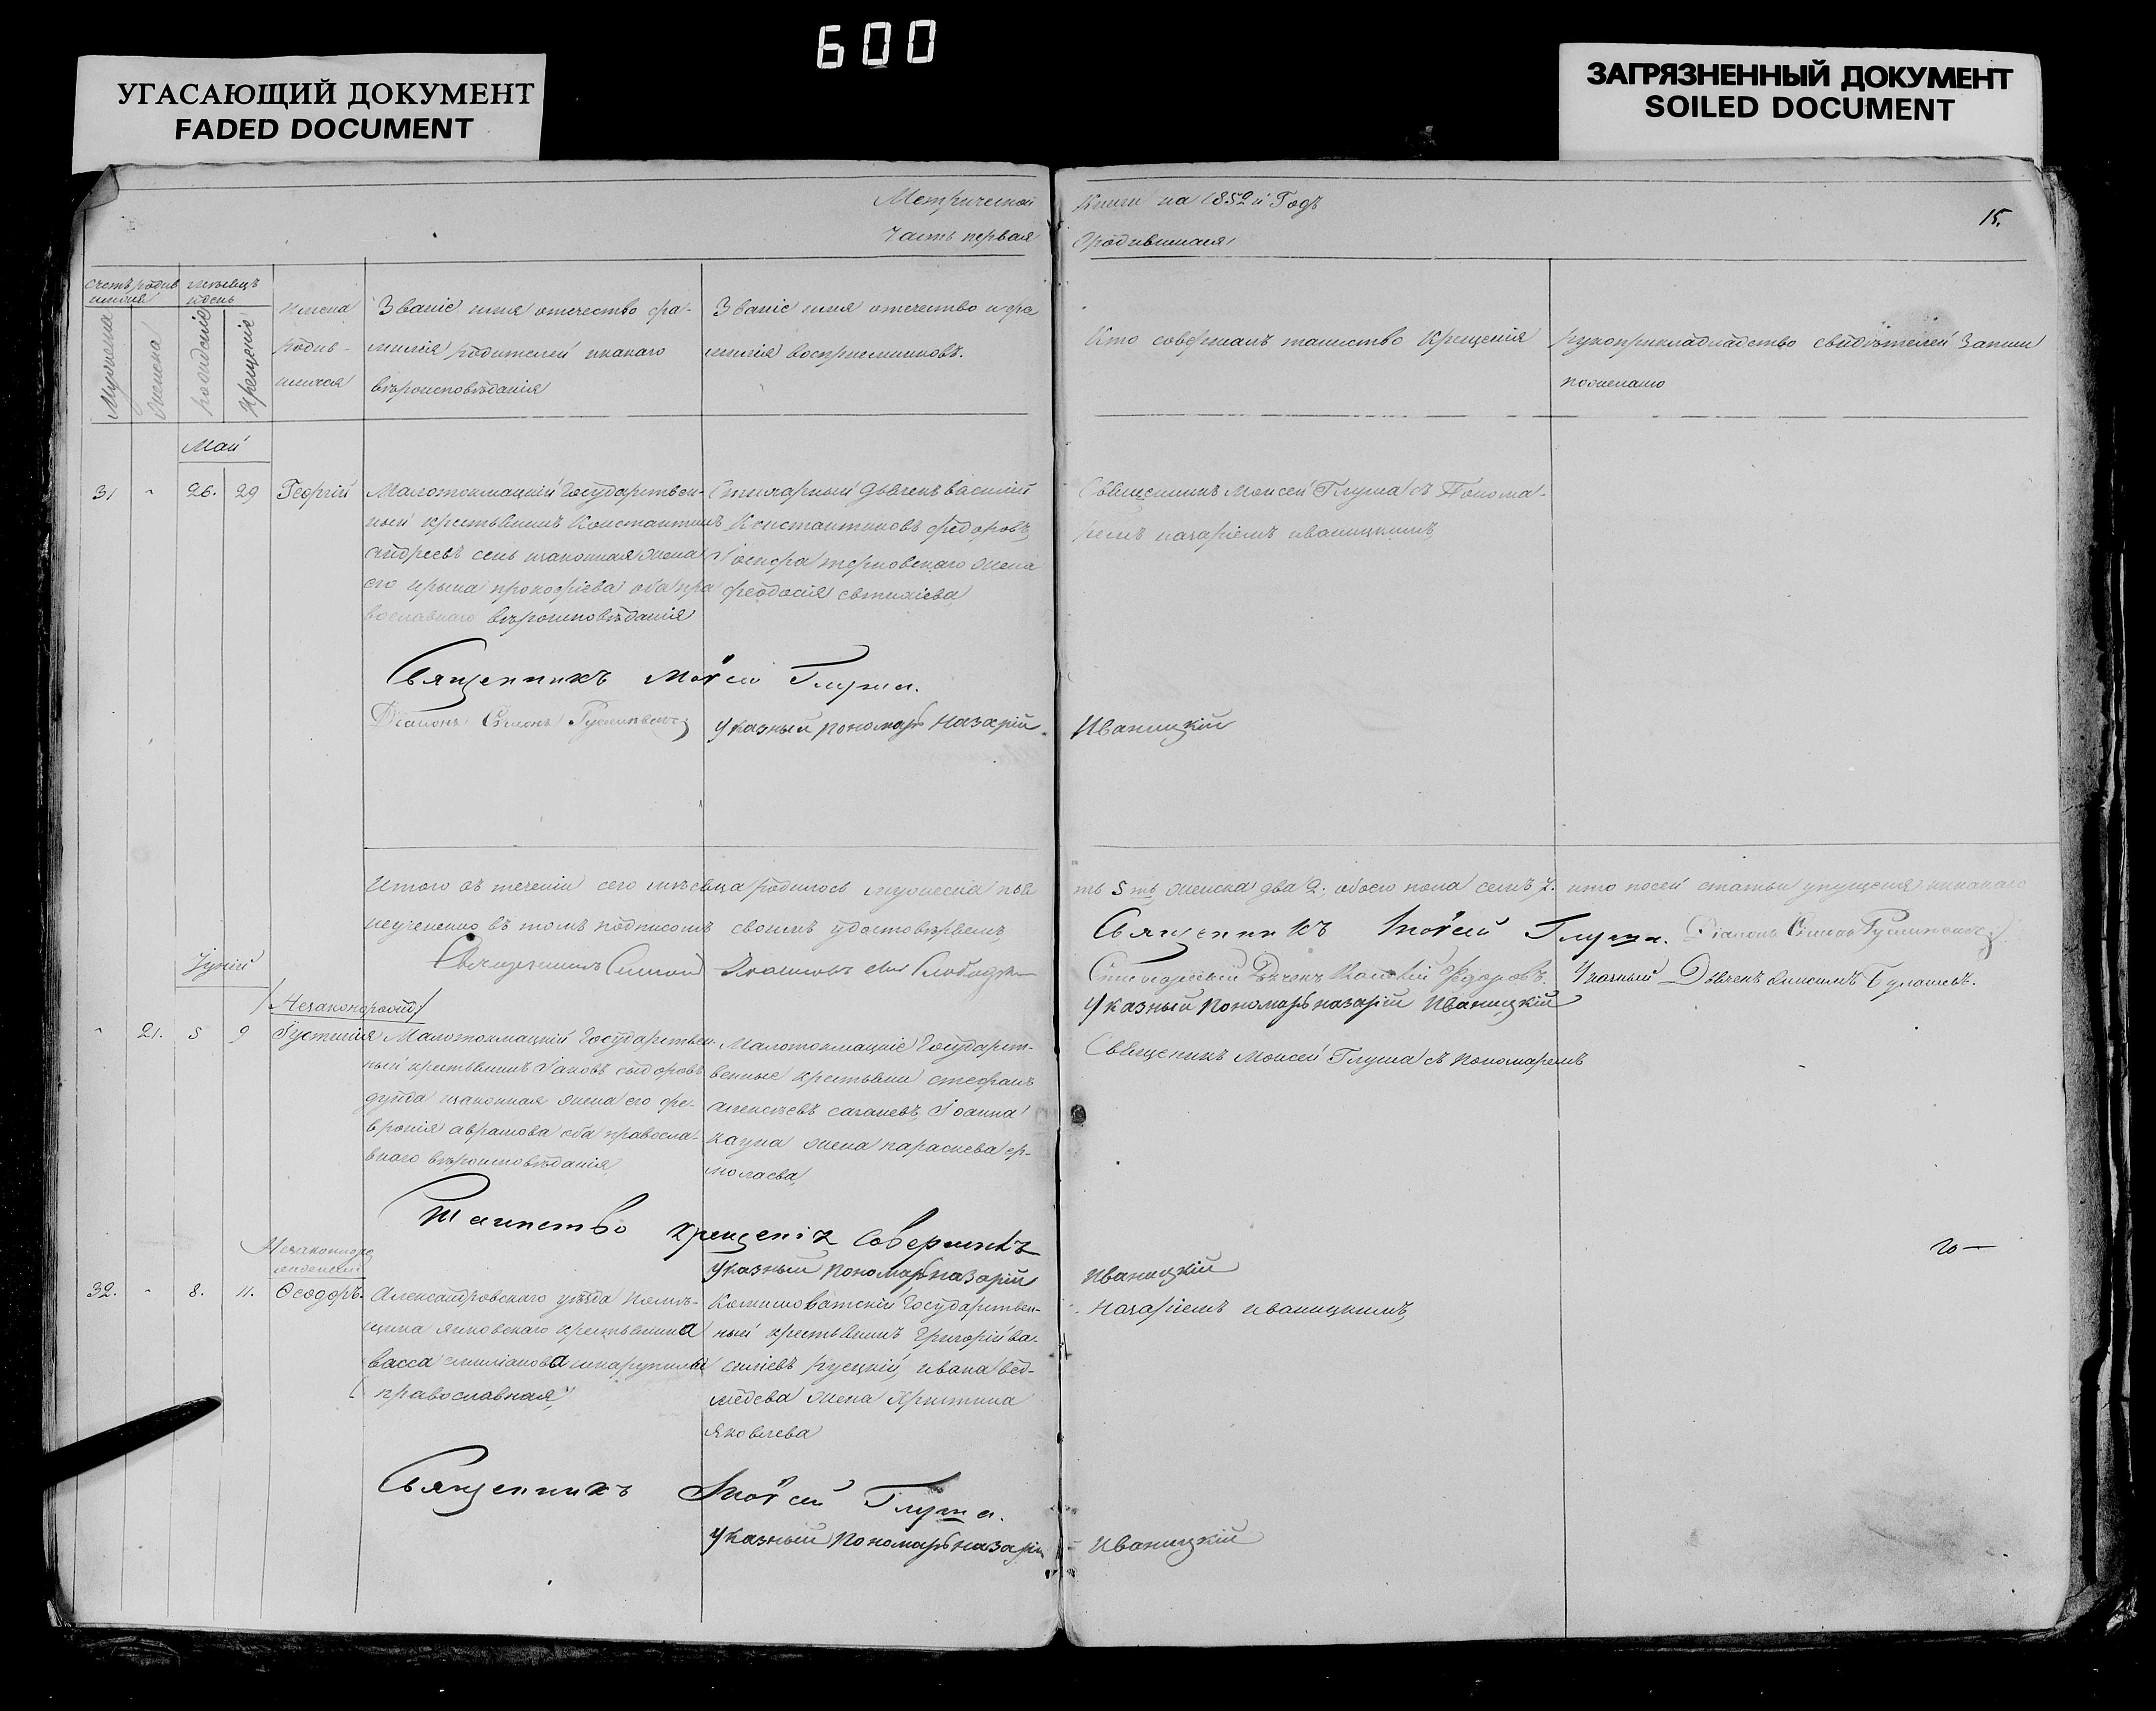 600
УГАСАЮЩИЙ ДОКУМЕНТ
FADED DOCUMENT
ЗАГРЯЗНЕННЫЙ ДОКУМЕНТ
SOILED DOCUMENT
Метрической Книги на 1852й Годъ
15.
Часть первая Ородившихся
счетъ родив мѣсяцъ
шихся идень
Мужеска
Женска
рождения
Крещенія
имена
родив-
шихся
Званіе имя отечество фа-
милія родителей икакаго
вѣроисповѣданія
Званіе имя отечество ифа
милія воспріемниковъ.
Кто совершалъ таинство Крещенія
рукоприкладъство свидѣтелей Записи
пожеланію
Май
31 " 26. 29 Георгій
Малотокмацкій Государствен-
ный крестьянинъ Константинъ
андреевъ сень изаконная жена
его ирына прокофіева оба пра
вославнаго вѣроисповѣданія
Стихарный Дьячекъ василій
Константиновъ федоровъ,
терновскаго жена
феодосія евтихіева
Священникъ Моисей Глуша съ Понома-
ремъ назаріемъ иваницкимъ
Священникъ Моѵсей Глуша.
Діаконъ Симонъ
Указный пономарь Назарій Иваницкій
Итого въ теченіи сего мѣсяца родилось мужеска пя ть 5ть женска два 2. обоего пола семь 7. что посей статьи упущенія никакаго
неучененно въ томъ подписомъ своимъ удостовѣряемъ,
Священникъ Моѵсей Глуша. Діаконъ Симонъ
Священникъ
Стихарный Дьячекъ Василій Федоровъ. Указный Дьячекъ
Указный Пономарь назарій Иваницкій
Іуній
/Незаконорожд/
" 21. 5 9 Іустинія
Малотокмацкій Государствен-
ный крестьянинъ Іаковъ сыдоровъ
дунда изаконная жена его фе-
вронія аврамова оба правосла-
внаго вѣроисповѣданія
Малотокмацкіе Государст-
венные крестьяни стефанъ
алексѣевъ саганевъ, Іоанна
кауна жена параскева ер-
молаева,
Священникъ Моисей Глуша съ пономаремъ
Таинство крещенія Совершилъ
Указный пономарь назарій Иваницкій
Незаконорож
денный
32. " 8. 11. Ѳеодоръ.
Александровскаго уѣзда помѣ-
щика янковскаго крестьянина
васса емиліанова
православная
Камышоватскій Государствен-
ный крестьянинъ Григорій ва-
силіевъ руецкій, ивана вед-
медева жена Христина
Яковлева
назаріемъ иваницкимъ,
Священникъ Моѵсей Глуша.
Указный Пономарь назарій Иваницкій